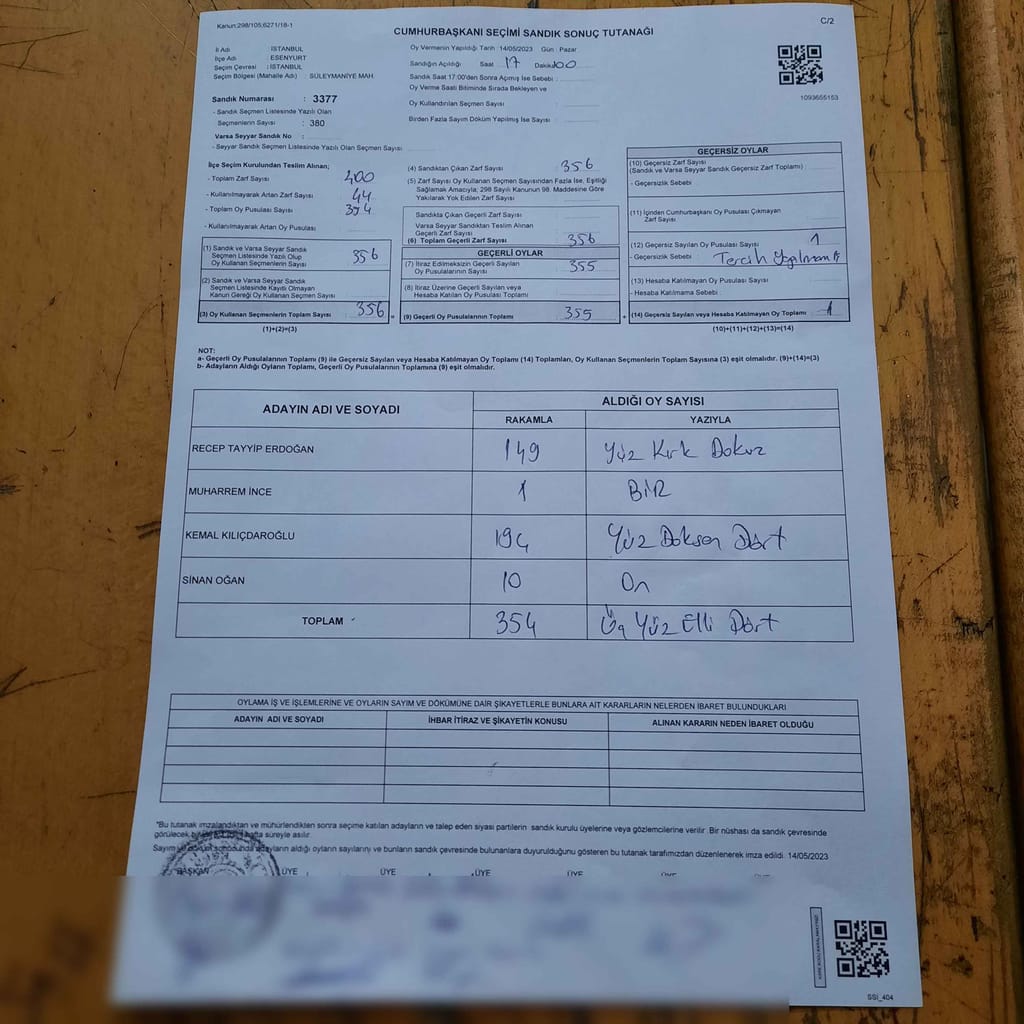 Kanun:298/105;6271/18-1
C/2
CUMHURBAŞKANI SEÇİMİ SANDIK SONUÇ TUTANAĞI
İl Adı : İSTANBUL
İlçe Adı : ESENYURT
Seçim Çevresi : İSTANBUL
Seçim Bölgesi (Mahalle Adı) : SÜLEYMANİYE MAH.
Sandık Numarası : 3377
- Sandık Seçmen Listesinde Yazılı Olan
Seçmenlerin Sayısı : 380
Varsa Seyyar Sandık No :
- Seyyar Sandık Seçmen Listesinde Yazılı Olan Seçmen Sayısı :
Oy Vermenin Yapıldığı Tarih : 14/05/2023 Gün : Pazar
Sandığın Açıldığı Saat : 17 Dakika 00
Sandık Saat 17:00'den Sonra Açmış İse Sebebi :
Oy Verme Saati Bitiminde Sırada Bekleyen ve
Oy Kullandırılan Seçmen Sayısı :
Birden Fazla Sayım Döküm Yapılmış İse Sayısı :
1093655153
İlçe Seçim Kurulundan Teslim Alınan;
- Toplam Zarf Sayısı : 400
- Kullanılmayarak Artan Zarf Sayısı : 44
- Toplam Oy Pusulası Sayısı :
- Kullanılmayarak Artan Oy Pusulası :
(1) Sandık ve Varsa Seyyar Sandık
Seçmen Listesinde Yazılı Olup
Oy Kullanan Seçmenlerin Sayısı : 356
(2) Sandık ve Varsa Seyyar Sandık
Seçmen Listesinde Kaydı Olmayan
Kanun Gereği Oy Kullanan Seçmen Sayısı :
(3) Oy Kullanan Seçmenlerin Toplam Sayısı : 356
(1)+(2)=(3)
(4) Sandıktan Çıkan Zarf Sayısı : 356
(5) Zarf Sayısı Oy Kullanan Seçmen Sayısından Fazla İse, Eşitliği
Sağlamak Amacıyla; 298 Sayılı Kanunun 98. Maddesine Göre
Yakılarak Yok Edilen Zarf Sayısı :
Sandıkta Çıkan Geçerli Zarf Sayısı :
Varsa Seyyar Sandıktan Teslim Alınan
Geçerli Zarf Sayısı :
(6) Toplam Geçerli Zarf Sayısı : 356
GEÇERLİ OYLAR
(7) İtiraz Edilmeksizin Geçerli Sayılan
Oy Pusulalarının Sayısı : 355
(8) İtiraz Üzerine Geçerli Sayılan veya
Hesaba Katılan Oy Pusulası Toplamı :
= (9) Geçerli Oy Pusulalarının Toplamı : 355
GEÇERSİZ OYLAR
(10) Geçersiz Zarf Sayısı
(Sandık ve Varsa Seyyar Sandık Geçersiz Zarf Toplamı) :
- Geçersizlik Sebebi :
(11) İçinden Cumhurbaşkanı Oy Pusulası Çıkmayan
Zarf Sayısı :
(12) Geçersiz Sayılan Oy Pusulası Sayısı : 1
- Geçersizlik Sebebi : Tercih
(13) Hesaba Katılmayan Oy Pusulası Sayısı :
- Hesaba Katılmama Sebebi :
+ (14) Geçersiz Sayılan veya Hesaba Katılmayan Oy Toplamı : 1
(10)+(11)+(12)+(13)=(14)
NOT:
a- Geçerli Oy Pusulalarının Toplamı (9) ile Geçersiz Sayılan veya Hesaba Katılmayan Oy Toplamı (14) Toplamları, Oy Kullanan Seçmenlerin Toplam Sayısına (3) eşit olmalıdır. (9)+(14)=(3)
b- Adayların Aldığı Oyların Toplamı, Geçerli Oy Pusulalarının Toplamına (9) eşit olmalıdır.
ADAYIN ADI VE SOYADI ALDIĞI OY SAYISI
RAKAMLA YAZIYLA
RECEP TAYYİP ERDOĞAN 149 Yüz Kırk Dokuz
MUHARREM İNCE 1 BİR
KEMAL KILIÇDAROĞLU 194 Yüz Doksan Dört
SİNAN OĞAN 10 On
TOPLAM 354 Üç Yüz Elli Dört
OYLAMA İŞ VE İŞLEMLERİNE VE OYLARIN SAYIM VE DÖKÜMÜNE DAİR ŞİKAYETLERLE BUNLARA AİT KARARLARIN NELERDEN İBARET BULUNDUKLARI
ADAYIN ADI VE SOYADI İHBAR İTİRAZ VE ŞİKAYETİN KONUSU ALINAN KARARIN NEDEN İBARET OLDUĞU
*Bu tutanak imzalandıktan ve mühürlendikten sonra seçime katılan adayların ve talep eden siyasi partilerin sandık kurulu üyelerine veya gözlemcilerine verilir. Bir nüshası da sandık çevresinde
görülecek bir hafta süreyle asılır.
Sayım ve döküm sonucunda adayların aldığı oyların sayılarını ve bunların sandık çevresinde bulunanlara duyurulduğunu gösteren bu tutanak tarafımızdan düzenlenerek imza edildi. 14/05/2023
BAŞKAN ÜYE ÜYE ÜYE ÜYE ÜYE
SSİ_404